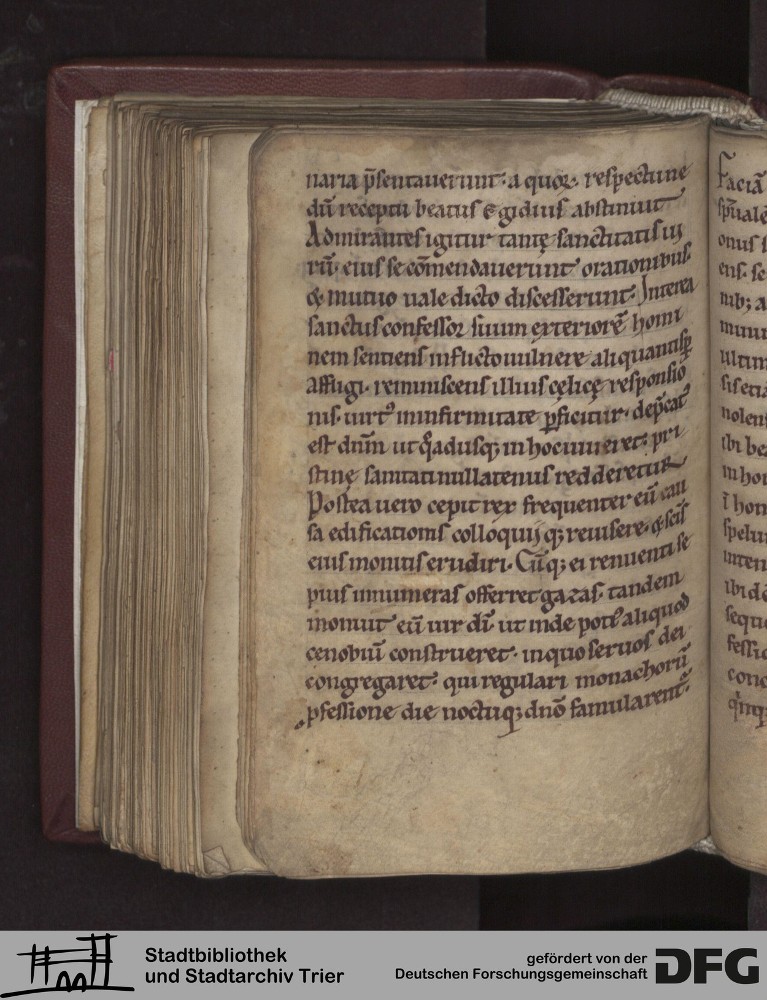 naria p̄sentauerunt· a quoꝝ respectu ne
dū receptu beatus egidius abstinuit
Admirantes igitur tantę sanctitatis ui
rū· eius se cōmendauerunt orationibus·
& mutuo uale dicto discesserunt· Interea
sanctus confessor suum exteriorē homi
nem sentiens inflicto uulnere aliquantisꝑ
affligi· reminiscens illius cęlicę responsio
nis· uirtꝰ in infirmitate ꝑficitur· dep̄catꝰ
est dn̄m ut qͣadusqꝫ in hoc uiueret· pri
stinę sanitati nullatenus redderetur
Postea uero cepit rex frequenter eū cau
sa edificationis colloquiiqꝫ reuisere· & scīs
eius monitis erudiri· Cūqꝫ ei renuenti se
pius innumeras offerret gazas· tandem
monuit eū uir dī· ut inde potiꝰ aliquod
cenobiū construeret· in quo seruos dei
congregaret· qui regulari monachorū
ꝓfessione die noctuqꝫ dn̄o famularent᷑·
Faciā
sp̄ualē
onus
ens· se
nibꝫ a
ultim
nolen
ibi be
in hoc
spelu
inten
ibi de
sequ
fessio
conc
Stadtbibliothek
und Stadtarchiv Trier
gefördert von der
Deutschen Forschungsgemeinschaft
DFG